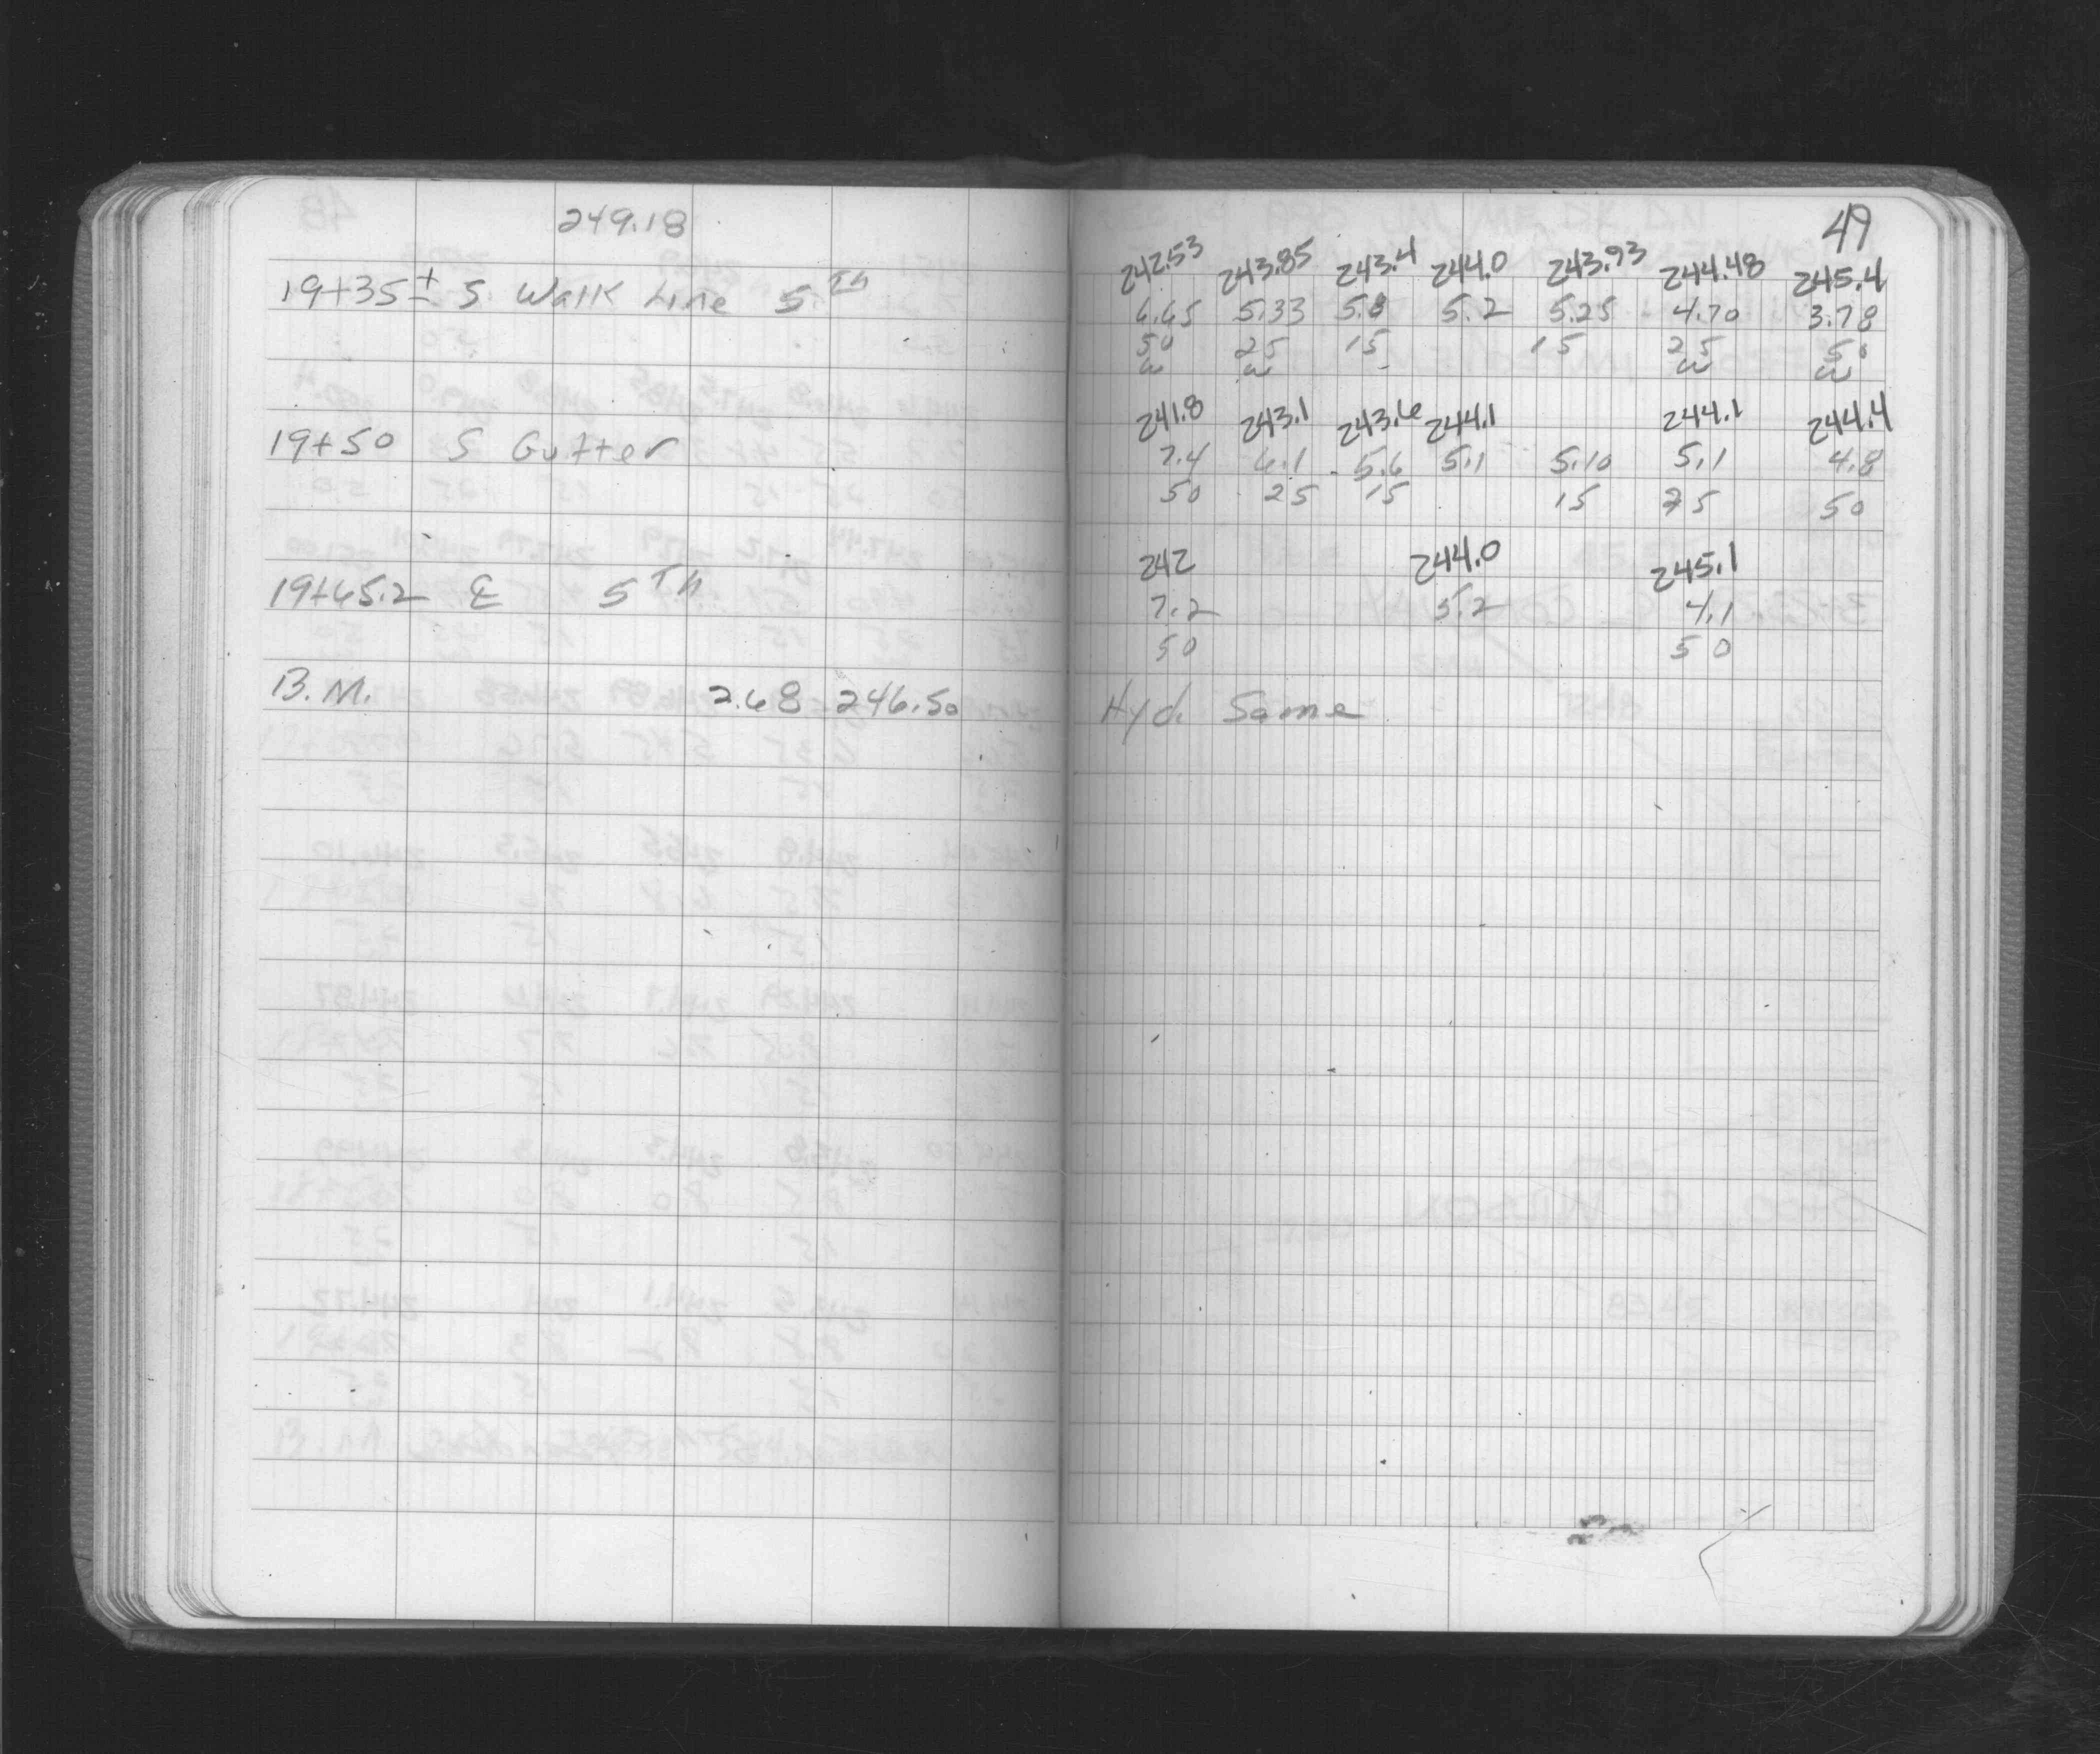 249.18
19+35± S Walk Line 5th
19+50 S Gutter
19+65.2 ℄ 5Th
B.M. 2.68 246.50
49
242.53 243.85 243.4 244.0 243.93 244.48 245.4
6.65 5.33 5.8 5.2 5.25 4.70 3.78
50 25 15 15 25 50
w w w w
241.8 243.1 243.6 244.1 244.1 244.4
7.4 6.1 5.6 5.1 5.10 5.1 4.8
50 25 15 15 25 50
242 244.0 245.1
7.2 5.2 4.1
50 50
Hyd. Same